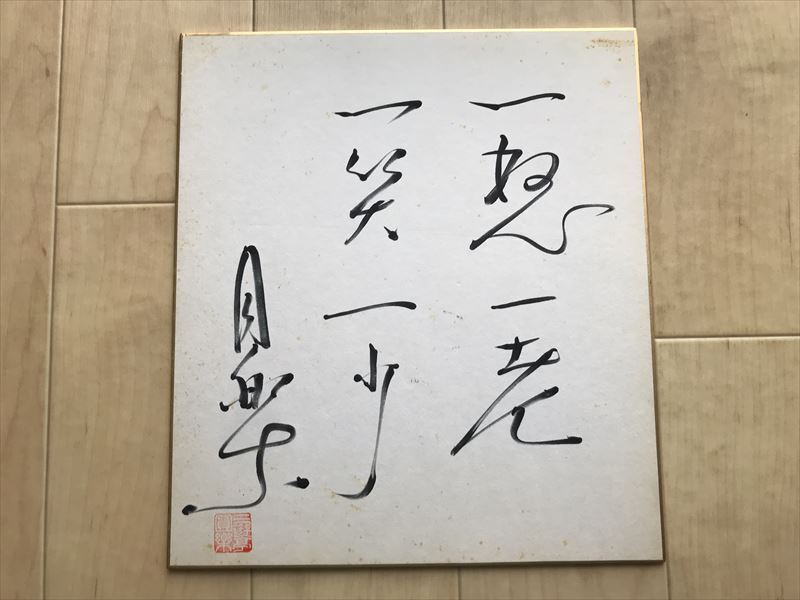 一怒一老
一笑一少
圓楽